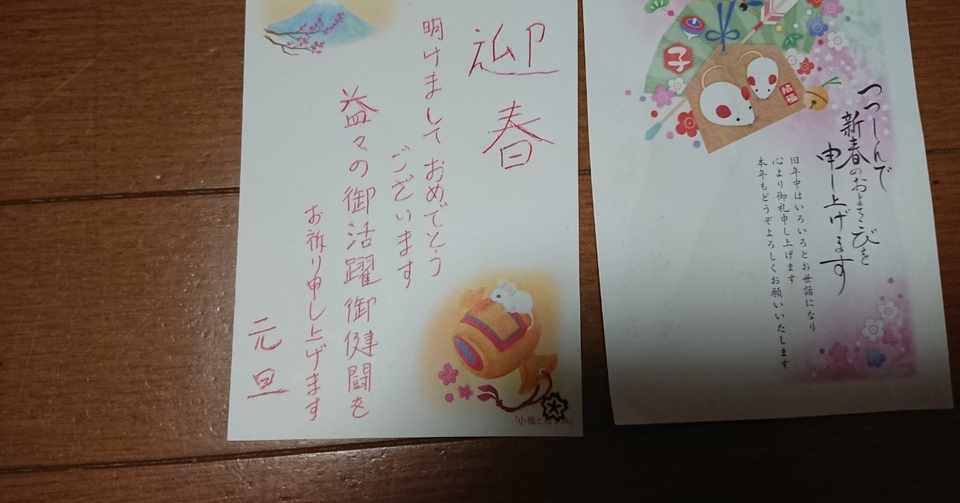 迎春
明けましておめでとう
ございます
益々の御活躍御健闘を
お祈り申し上げます
元旦
子
つつしんで
新春のおよろこびを
申し上げます
旧年中はいろいろとお世話になり
心より御礼申し上げます
本年もどうぞよろしくお願いいたします